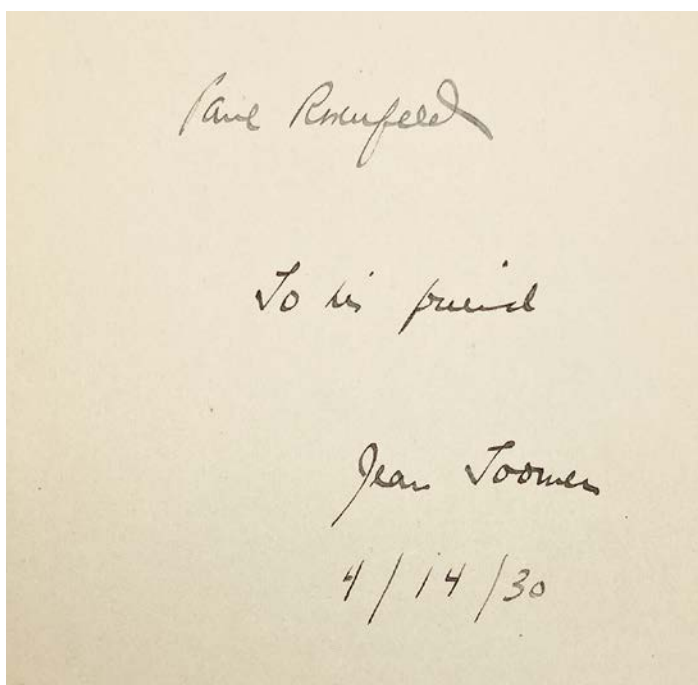 Paul Rosenfeld
To his friend
Jean Toomer
4/14/30